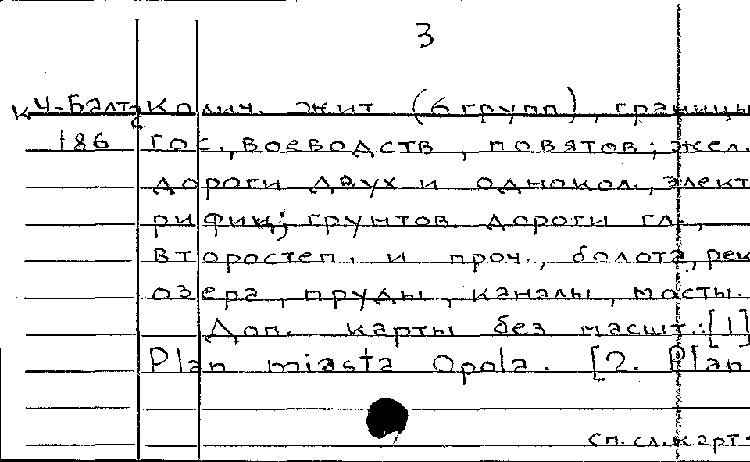 3
К Ч-Балт Колич. жит. (6 групп), границы
186 гос., воеводств, повятов; жел.
дороги двух и однокол., элект
рифиц; грунтов. дороги гл.,
второстеп. и проч., болота, рек
озера, пруды, каналы, мосты.
Доп. карты без масшт.: [1]
Plan miasta Opola. [2. Plan
сл. карт.